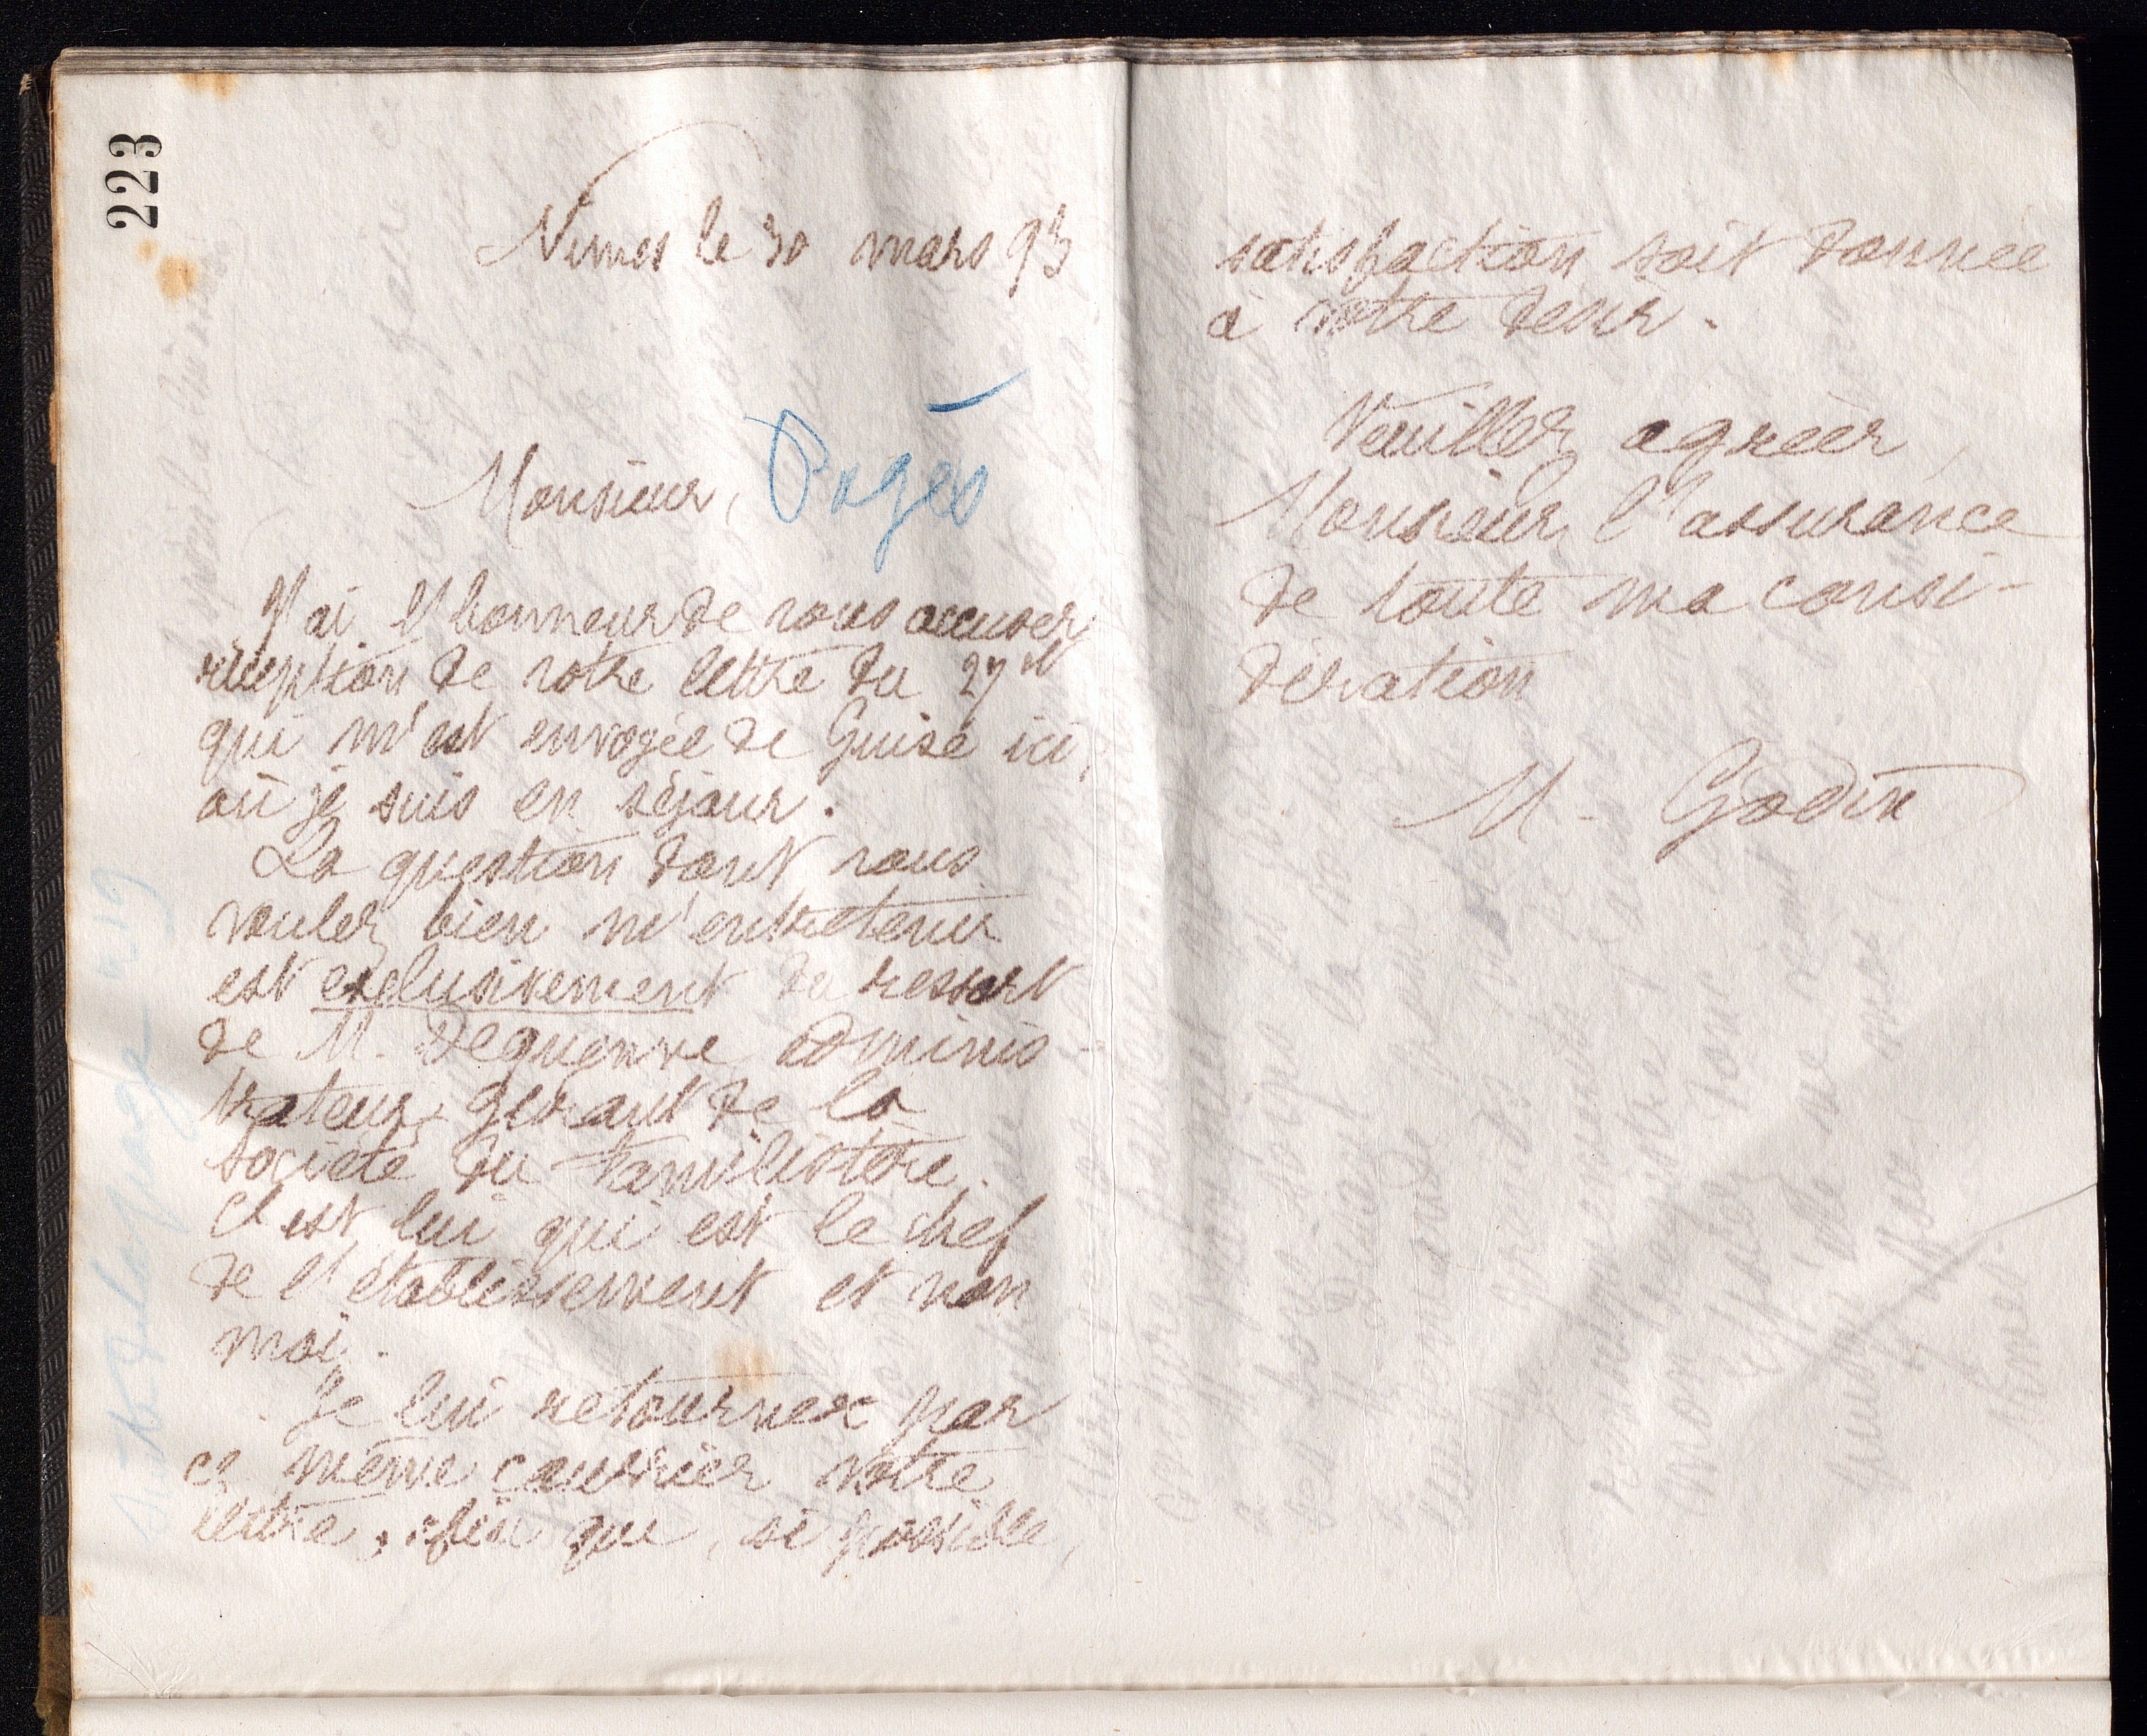 223
Nimes le 30 mars 93
Monsieur, Pagès
J'ai l'honneur de vous accuser
réception de votre lettre du 27 ct
qui m'est envoyée de Guise ici,
où je suis en séjour.
La question dont vous
voulez bien m'entretenir
est exclusivement du ressort
de M. Dequenne adminis-
trateur-gérant de la
société du Familistère.
C'est lui qui est le chef
de l'établissement et non
moi.
Je lui retourne par
ce même courrier votre
lettre, afin que, si possible,
satisfaction soit donnée
à votre désir.
Veuillez agréer,
Monsieur, l'assurance
de toute ma consi-
dération
M. Godin